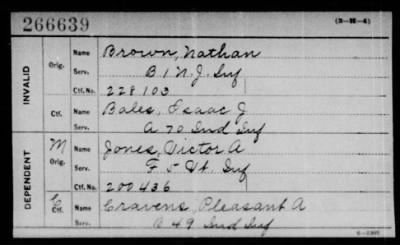 266639
(3-H-4)
INVALID
Orig.
Name
Brown, Nathan
Serv.
B 1 N.J. Inf
Ctf. No.
228103
Ctf.
Name
Bales, Isaac J
Serv.
A 70 Ind Inf
DEPENDENT
M
Orig.
Name
Jones, Victor A
Serv.
F 5 Vt. Inf
Ctf. No.
200436
C
Ctf.
Name
Cravens, Pleasant A
Serv.
49 Ind Inf